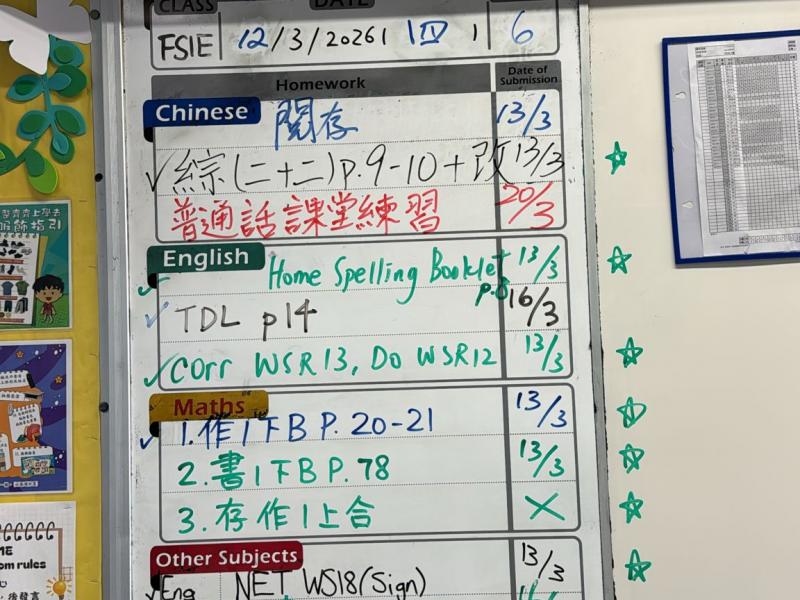 CLASS DATE
FSIE 12/3/2026 | 四 | 6
Homework Date of Submission
Chinese 閱存 13/3
✓ 綜(二十二)p.9-10+改 13/3
普通話課堂練習 20/3
English Home Spelling Booklet p.8 13/3
✓ TDL p14 16/3
✓ Corr WSR13, Do WSR12 13/3
Maths
✓ 1.作1下B P. 20-21 13/3
2.書1下B P. 78 13/3
3.存作1上合 ×
Other Subjects 13/3
✓ Eng NET WS18(Sign)
服飾指引
om rules